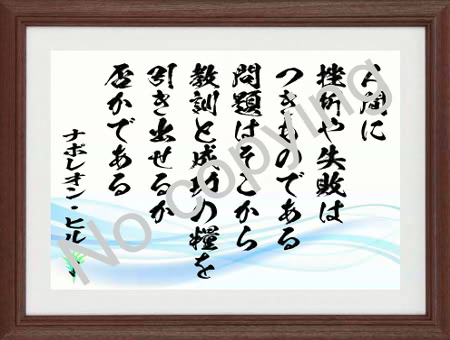 人間に
挫折や失敗は
つきものである
問題はそこから
教訓と成功の糧を
引き出せるか
否かである
ナポレオン・ヒル
No copying